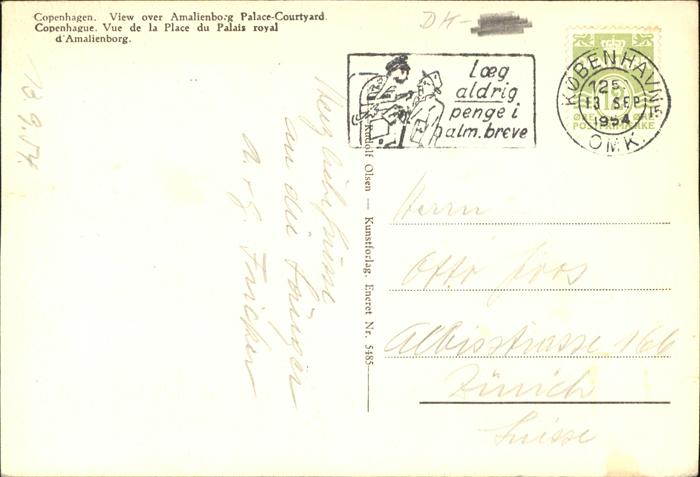 Copenhagen. View over Amalienborg Palace-Courtyard.
Copenhague. Vue de la Place du Palais royal
d'Amalienborg.
DK-
Læg
aldrig
penge i
alm. breve
KØBENHAVN
125
13 SEP
1954
OMK.
13.9.54
Herzliche Grüsse
an die Sänger
A. + G. Fricker
Rudolf Olsen — Kunstforlag. Eneret Nr. 5485
Herrn
Otto Joos
Albisstrasse 166
Zürich
Suisse